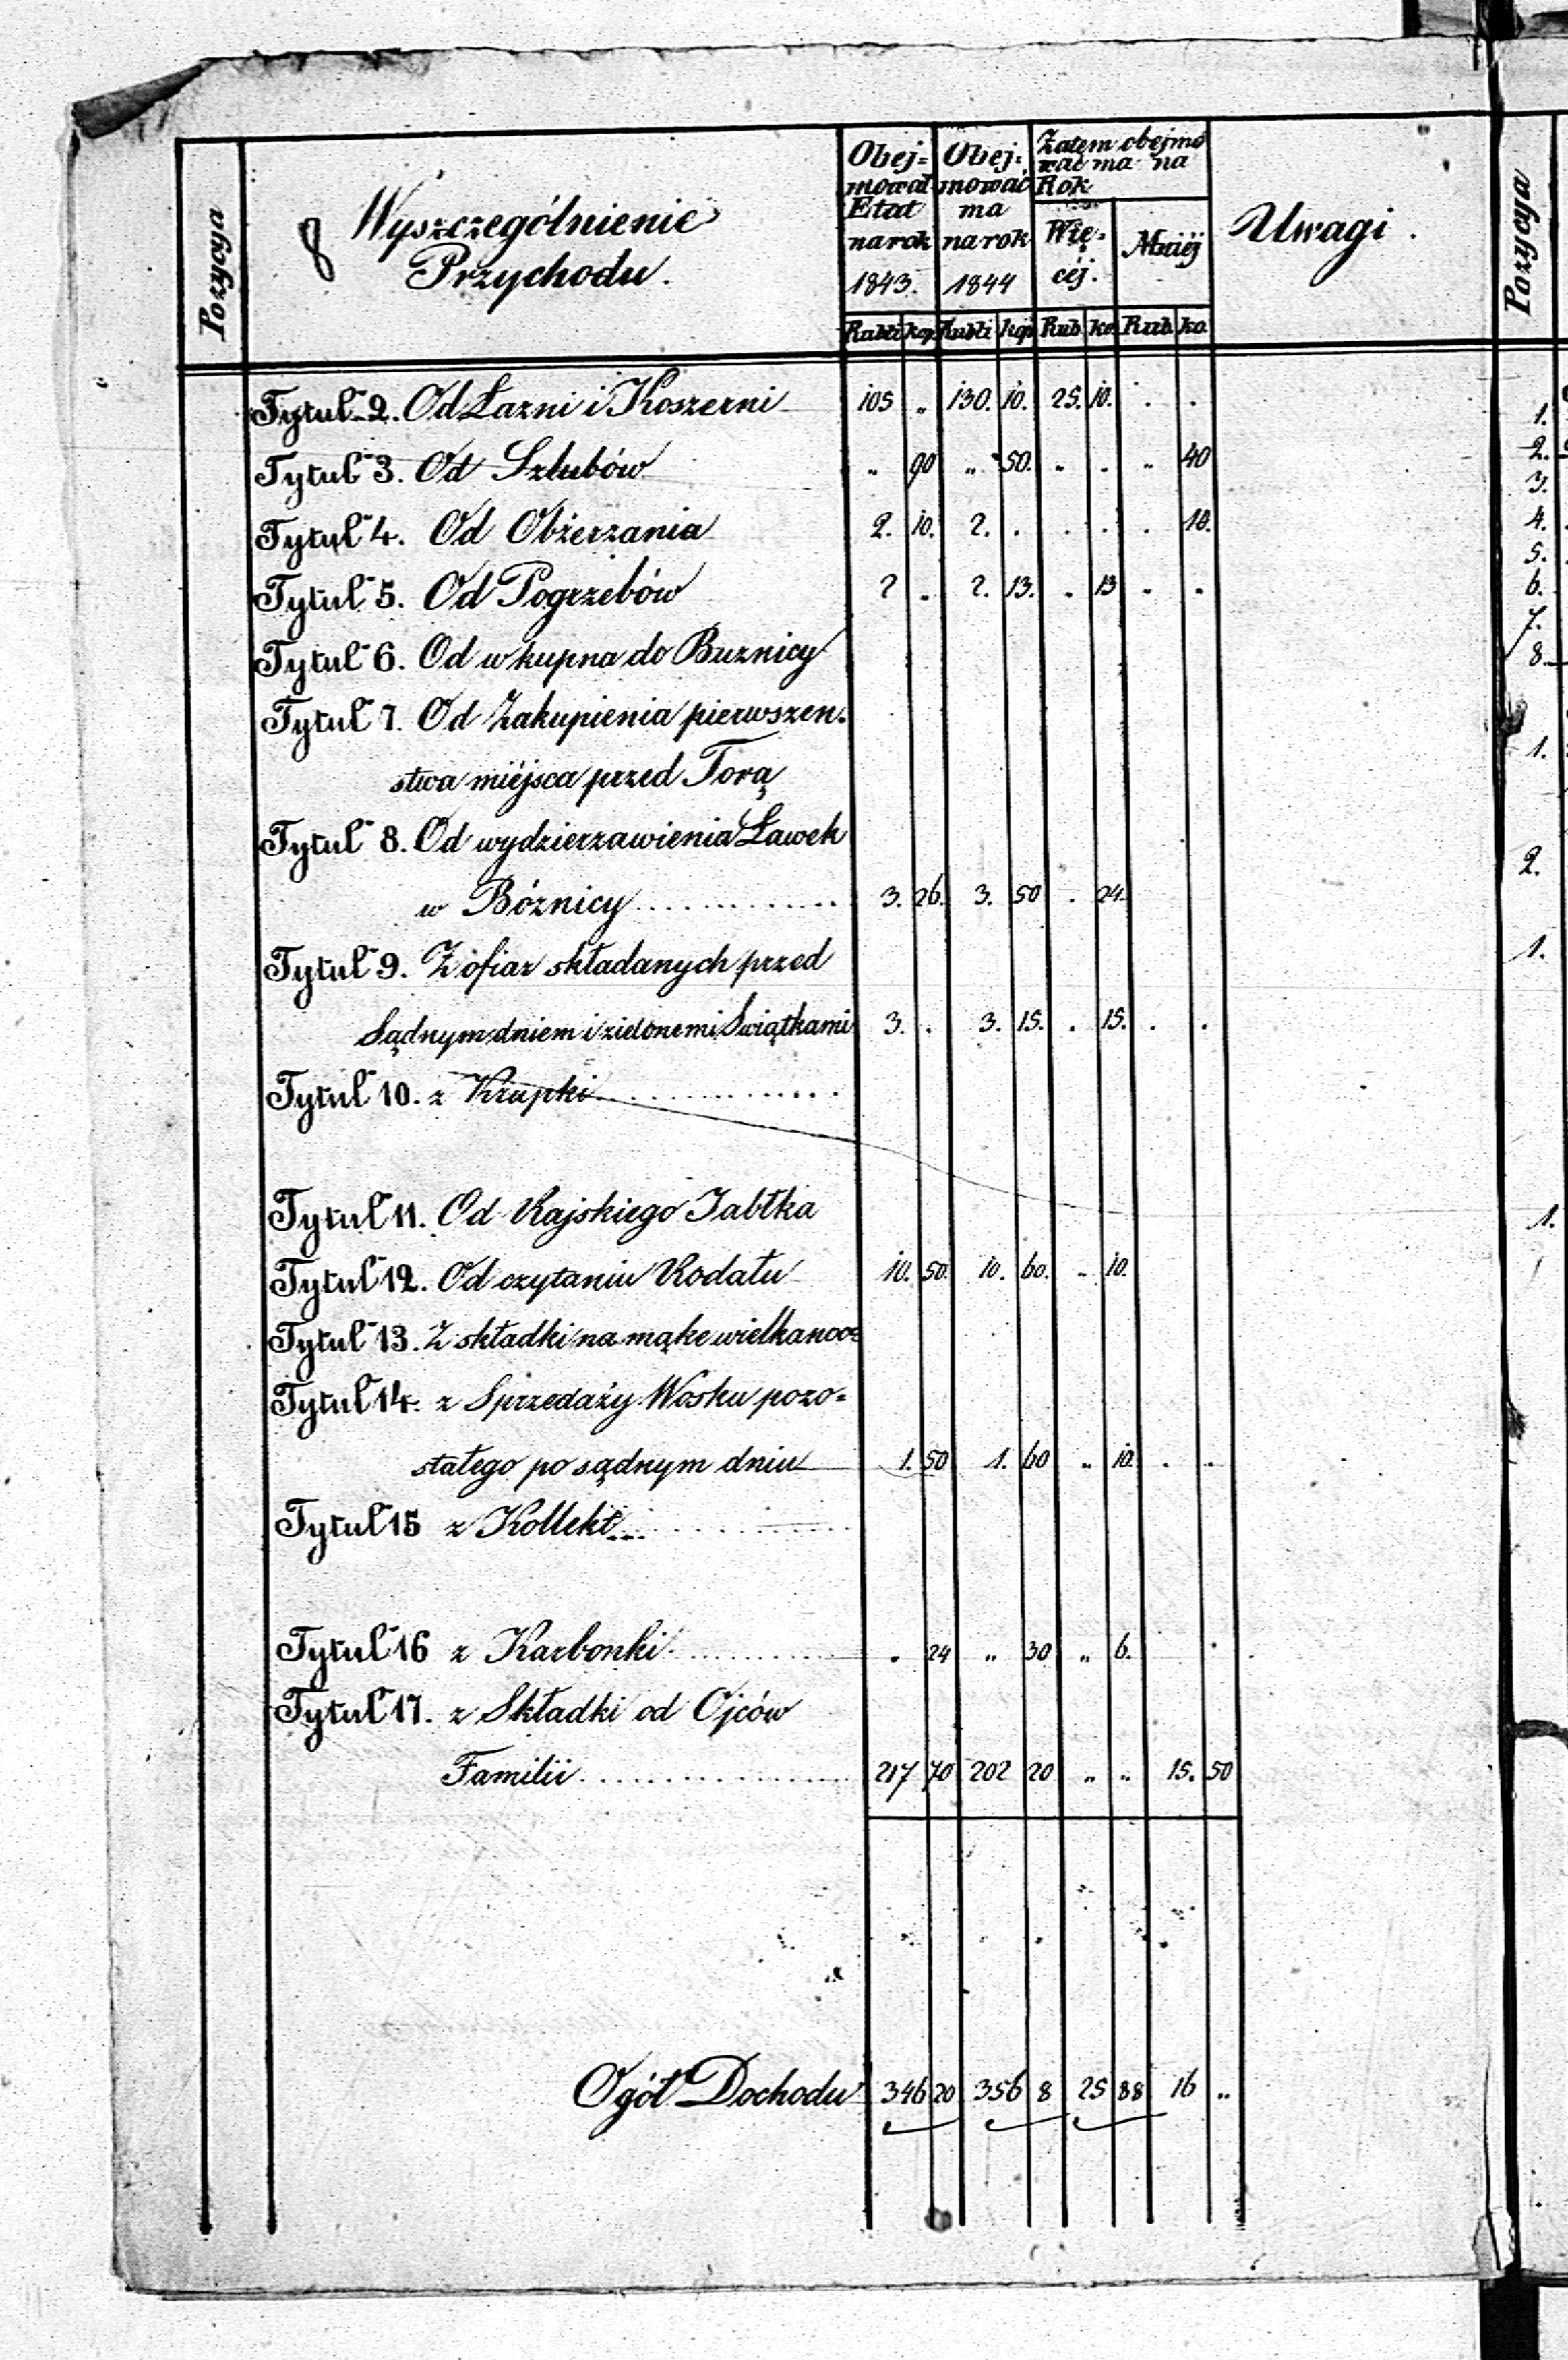 Pozycya
Wyszczególnienie
Przychodu.
Obej=
mował
Etat
na rok
1843.
Obej=
mować
ma
na rok
1844
Zatem obejmo
wać ma na
Rok
Wię=
céj.
Mniéj
Uwagi.
Rubli kop Rubli kop Rub. ko. Rub. ko.
Tytuł 2. Od Łazni i Koszerni 105 „ 130. 10. 25. 10. . .
Tytuł 3. Od Szlubów „ 90 „ 50. „ . „ 40
Tytuł 4. Od Obżerzania 2. 10. 2. . . . . 10.
Tytuł 5. Od Pogrzebów 2 „ 2. 13. „ 13 „ .
Tytuł 6. Od wkupna do Buznicy
Tytuł 7. Od Zakupienia pierwszen.
stwa miéjsca przed Torą
Tytuł 8. Od wydzierzawienia Ławek
w Bóznicy 3. 26. 3. 50 . 24.
Tytuł 9. Z ofiar składanych przed
Sądnym dniem i zielonemi Swiątkami 3. . 3. 15. . 15. . .
Tytuł 10. z Krupki
Tytuł 11. Od Rajskiego Jabłka
Tytuł 12. Od czytaniu Rodału 10. 50. 10. 60. „ 10.
Tytuł 13. Z składki na mąke wielkanoc
Tytuł 14. z Sprzedaży Wosku pozo=
stałego po sądnym dniu 1. 50 1. 60 „ 10. . „
Tytuł 15 z Kollekt
Tytuł 16 z Karbonki . 24 „ 30 „ 6. .
Tytuł 17. z Składki od Ojców
Familii 217 70 202 20 „ „ 15. 50
Ogół Dochodu 346 20 356 8 25 88 16 „
Pozycya
1.
2.
3.
4.
5.
6.
7.
8.
1.
2.
1.
1.